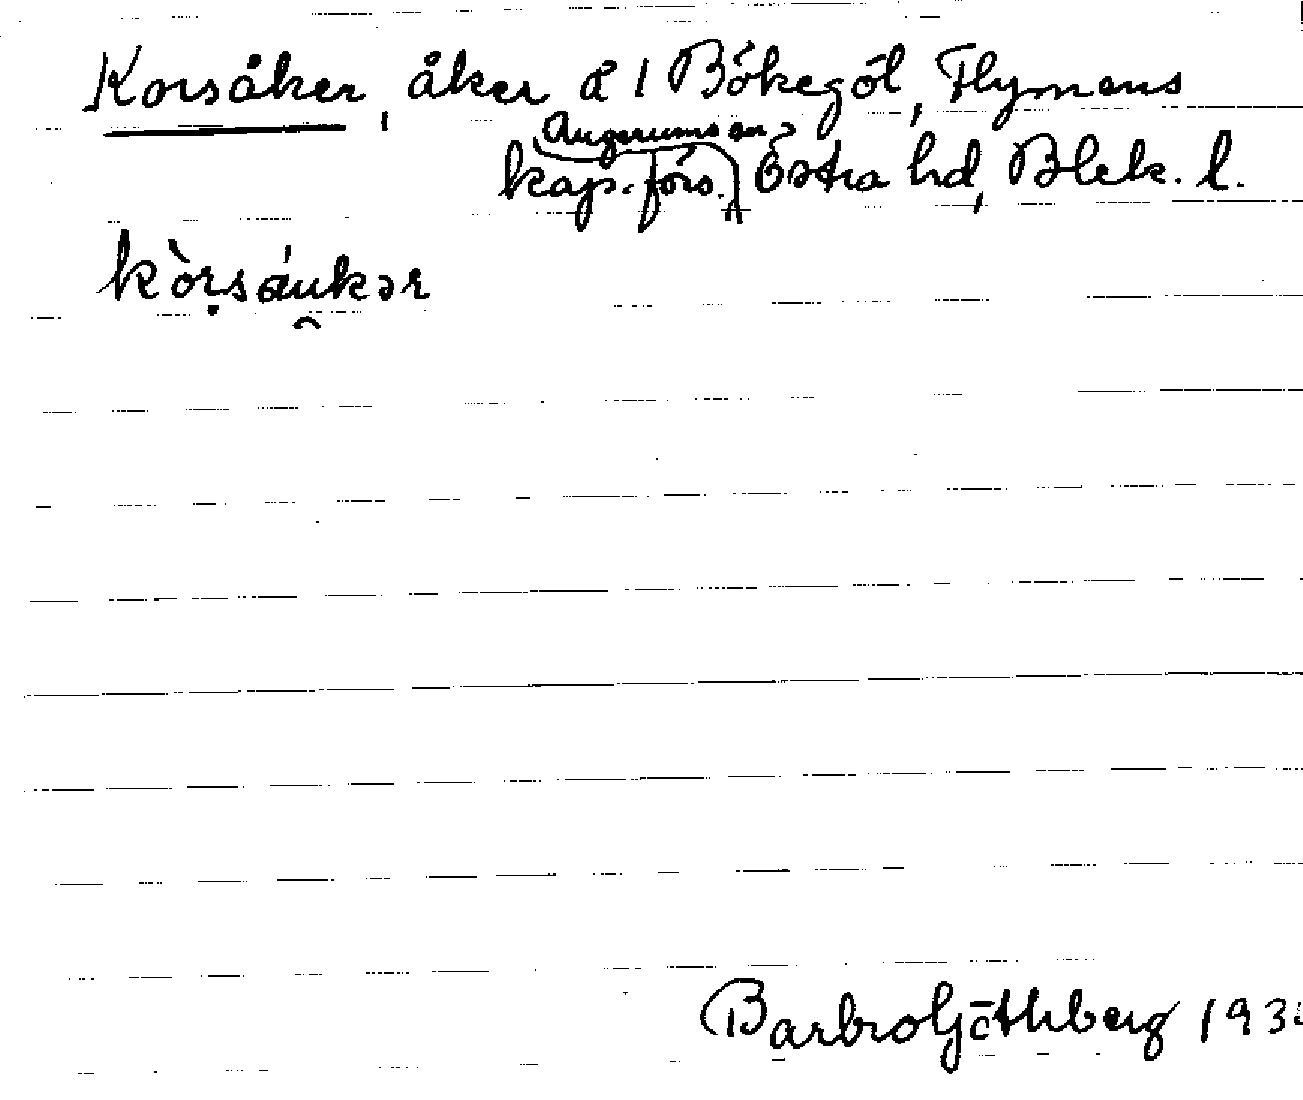 Korsåker, åker å 1 Bökegöl, Flymens
Augerums sn,
kap. förs. Östra hd, Blek. l.
kòrsáukər
Barbro Göthberg 193